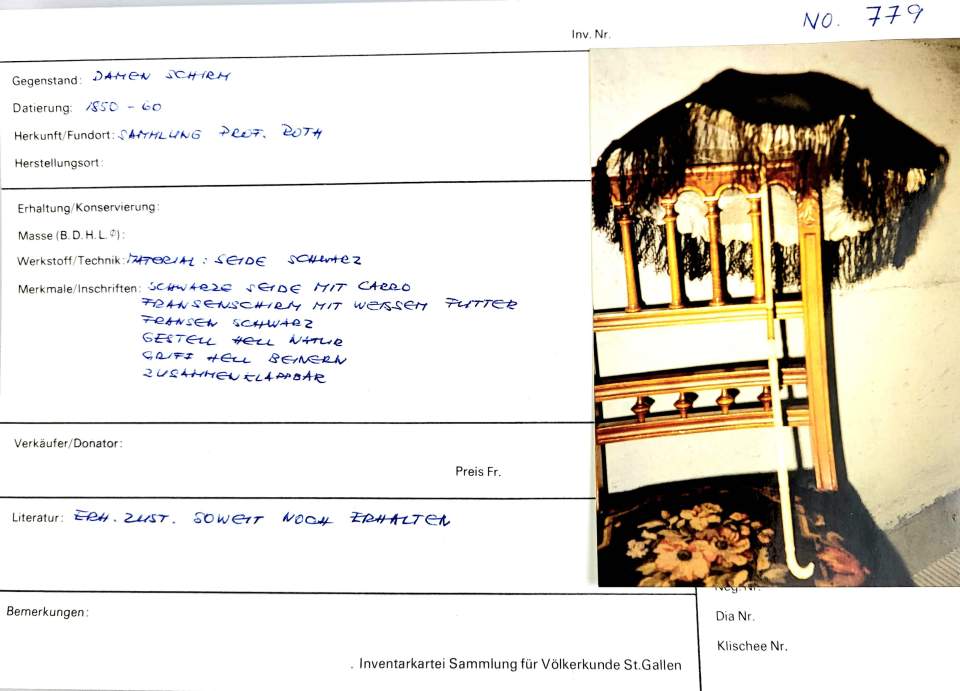 NO. 779
Inv. Nr.
Gegenstand: DAMEN SCHIRM
Datierung: 1850 - 60
Herkunft/Fundort: SAMMLUNG PROF. ROTH
Herstellungsort:
Erhaltung/Konservierung:
Masse (B. D. H. L. ∅):
Werkstoff/Technik: MATERIAL: SEIDE SCHWARZ
Merkmale/Inschriften: SCHWARZE SEIDE MIT CARRO
FRANSENSCHIRM MIT WEISSEM FUTTER
FRANSEN SCHWARZ
GESTELL HELL NATUR
GRIFF HELL BEINERN
ZUSAMMENKLAPPBAR
Verkäufer/Donator:
Preis Fr.
Literatur: ERH. ZUST. SOWEIT NOCH ERHALTEN
Neg. Nr.
Bemerkungen:
Dia Nr.
Klischee Nr.
. Inventarkartei Sammlung für Völkerkunde St. Gallen